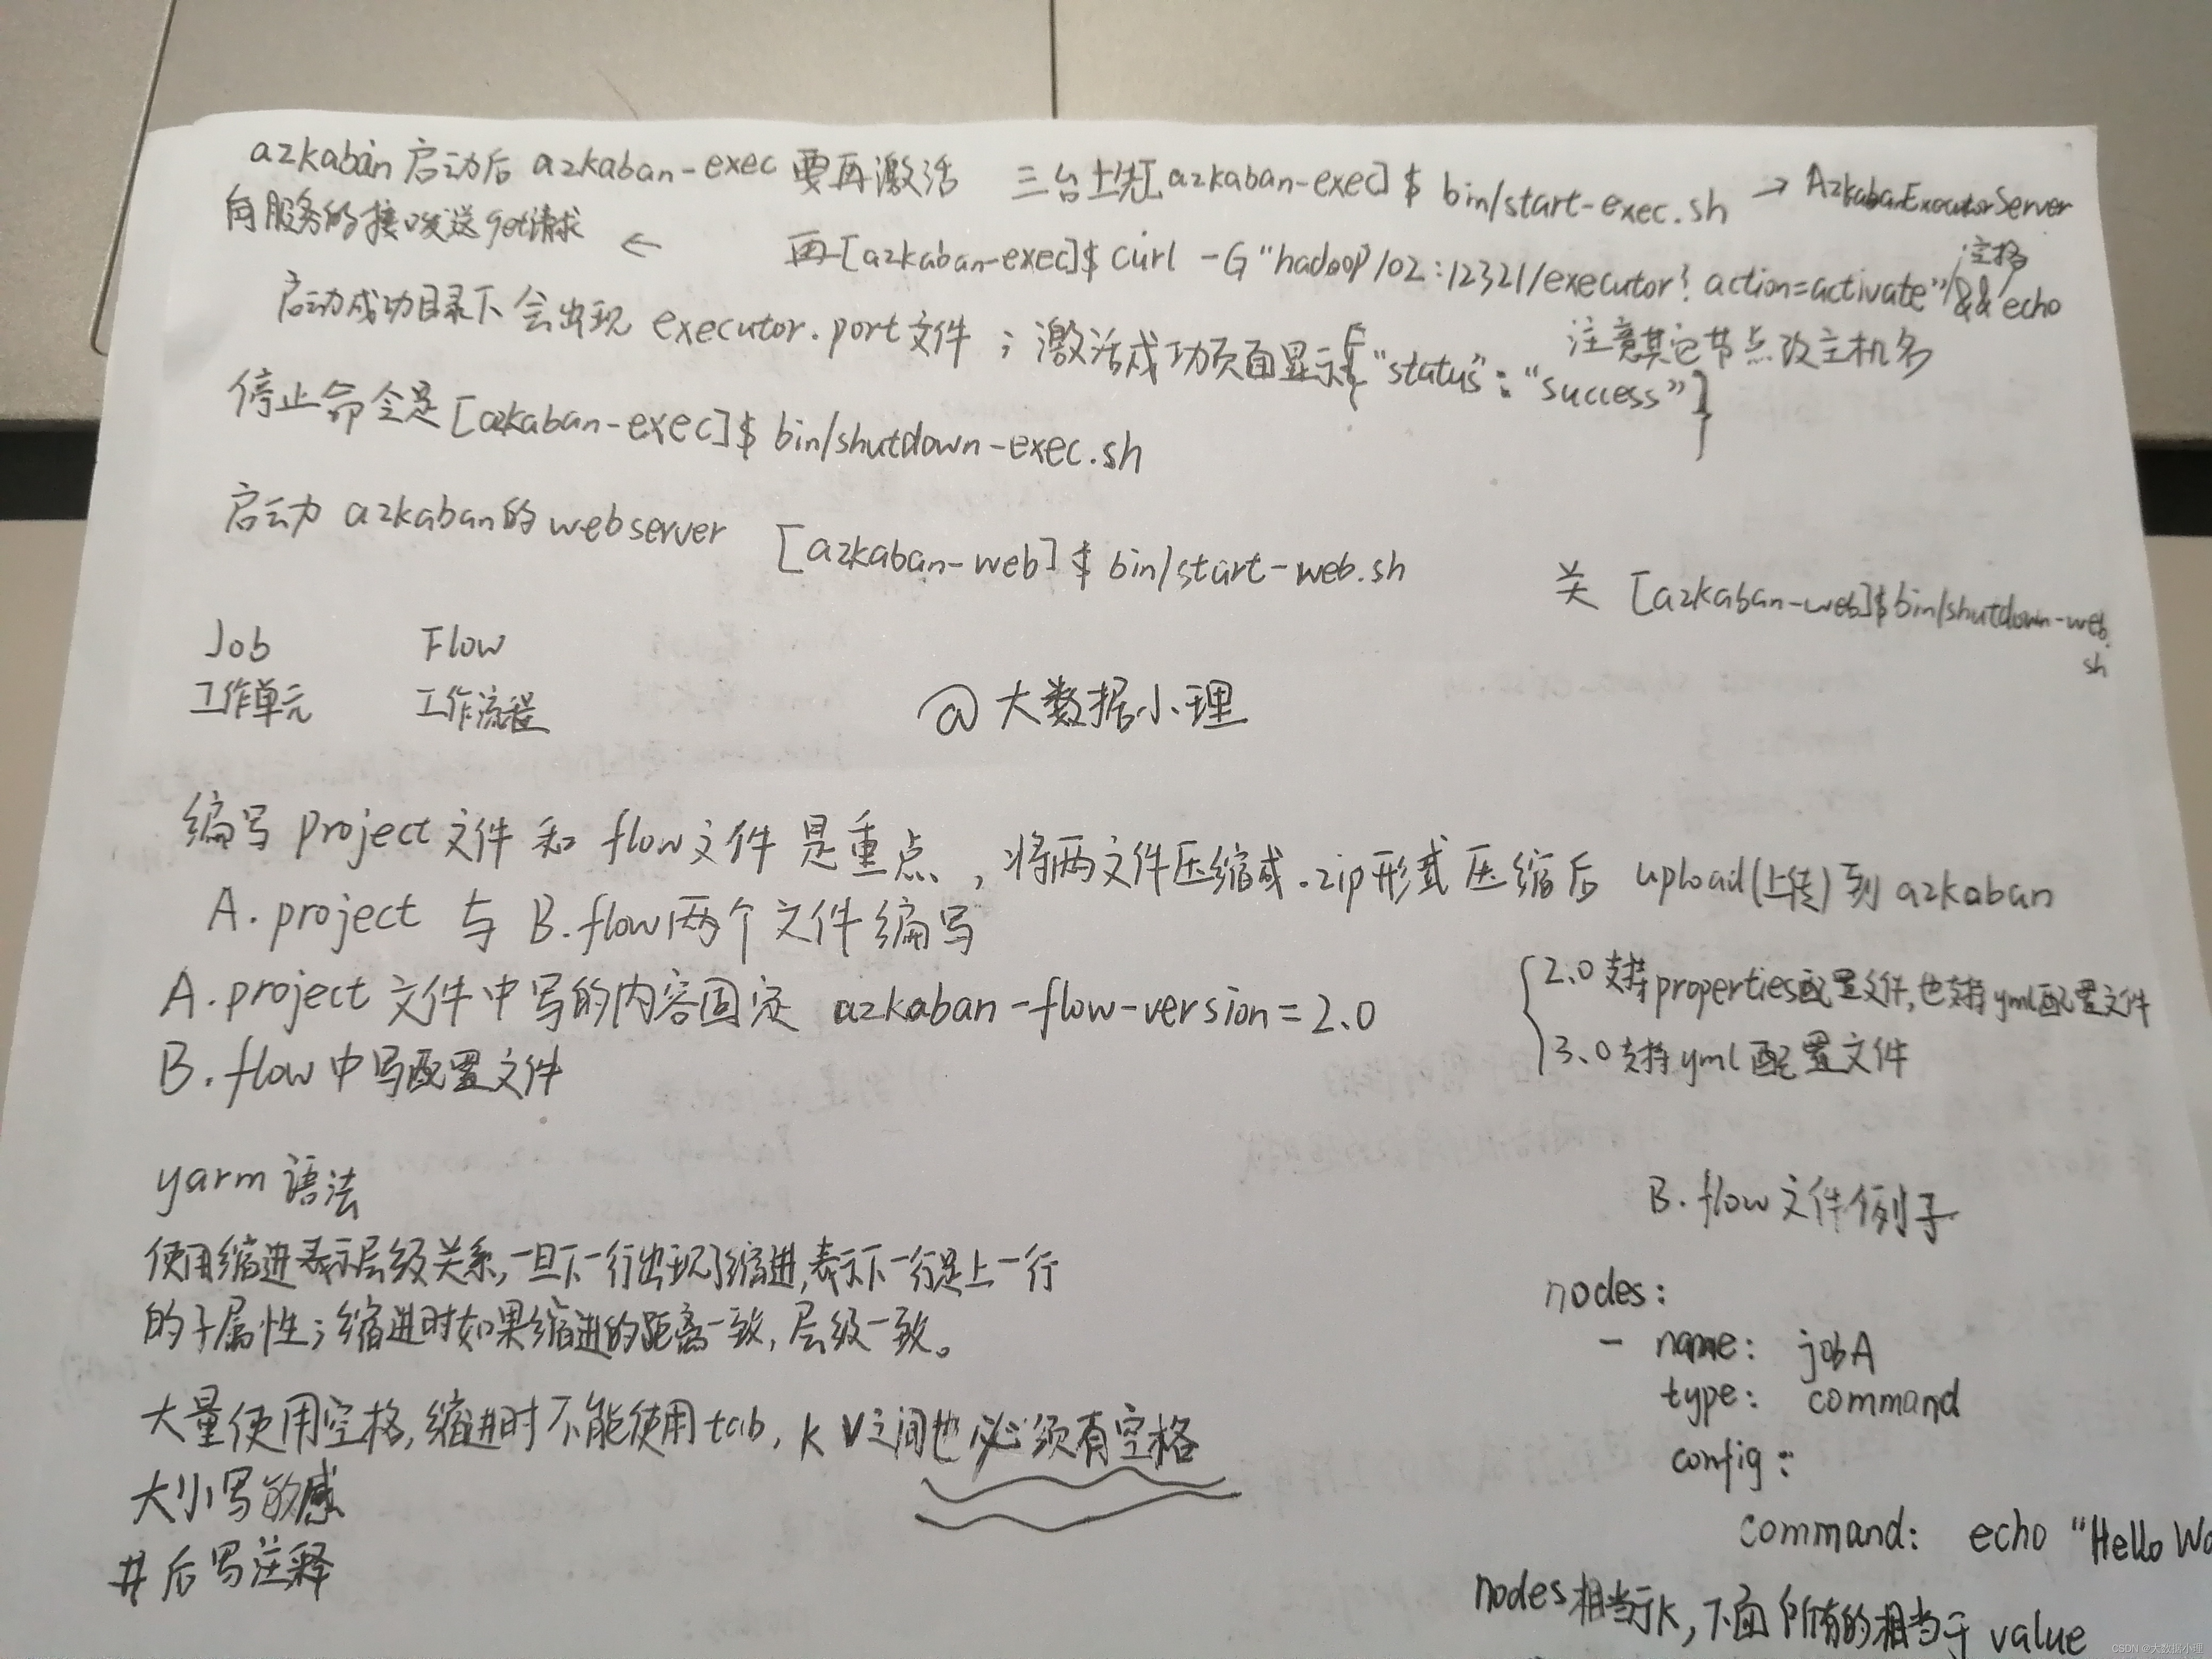 azkaban启动后 azkaban-exec 要再激活 三台上先[azkaban-exec]$ bin/start-exec.sh → AzkabanExecutorServer
向服务的接口发送get请求 ← 再[azkaban-exec]$ curl -G "hadoop102:12321/executor?action=activate" && echo
空格
启动成功目录下会出现 executor.port文件；激活成功页面显示{"status":"success"}
注意其它节点改主机名
停止命令是[azkaban-exec]$ bin/shutdown-exec.sh
启动 azkaban的webserver [azkaban-web]$ bin/start-web.sh
关 [azkaban-web]$ bin/shutdown-web.
sh
Job Flow
工作单元 工作流程
@大数据小理
编写project文件和flow文件是重点，将两文件压缩成.zip形式压缩后 upload(上传)到azkaban
A.project 与 B.flow两个文件编写
A.project文件中写的内容固定 azkaban-flow-version=2.0
B.flow中写配置文件
2.0支持properties配置文件,也支持yml配置文件
3.0支持yml配置文件
yarm语法
使用缩进表示层级关系,一旦下一行出现了缩进,表示下一行是上一行
的子属性；缩进时如果缩进的距离一致,层级一致。
大量使用空格,缩进时不能使用tab, k v之间也必须有空格
大小写敏感
#后写注释
B.flow文件例子
nodes:
- name: jobA
type: command
config:
command: echo "Hello Wo
nodes相当于K,下面所有的相当于value
CSDN @大数据小理